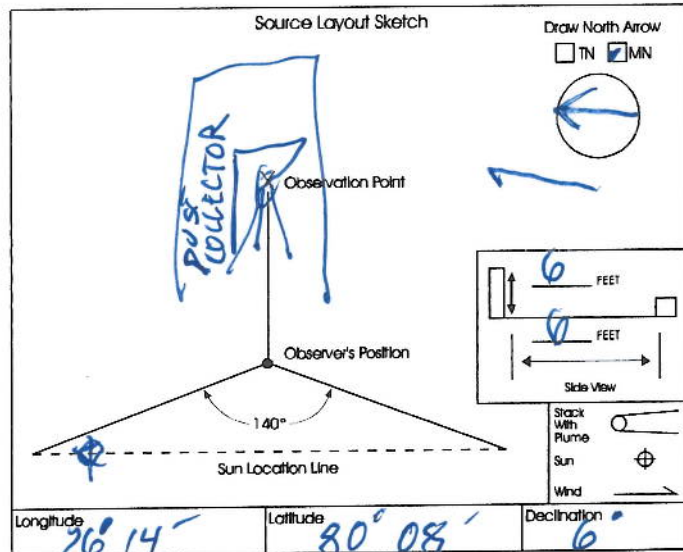 Source Layout Sketch
Draw North Arrow
TN MN
DUST
COLLECTOR
Observation Point
6 FEET
6 FEET
Side View
Observer's Position
140°
Sun Location Line
Stack
With
Plume
Sun
Wind
Longitude
26° 14'
Latitude
80° 08'
Declination
6°